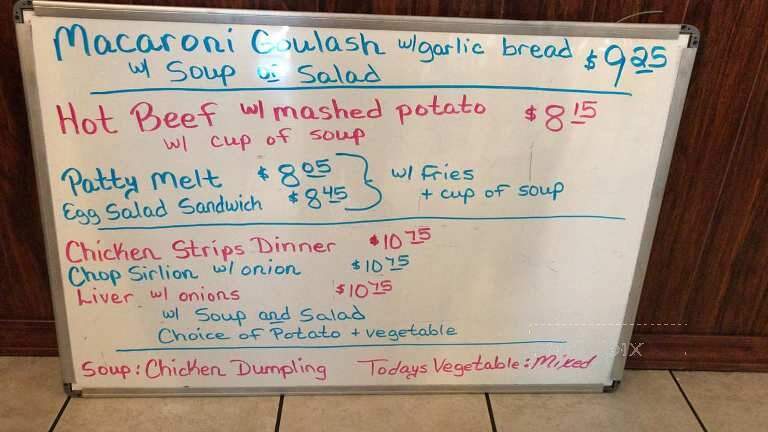 Macaroni Goulash w/garlic bread $9 25
w/ Soup or Salad
Hot Beef w/ mashed potato $8 15
w/ cup of soup
Patty Melt $8 05
Egg Salad Sandwich $8 45
w/ Fries
+ cup of soup
Chicken Strips Dinner $10 75
Chop Sirlion w/ onion $10 75
Liver w/ onions $10 75
w/ Soup and Salad
Choice of Potato + vegetable
Soup: Chicken Dumpling Todays Vegetable: Mixed